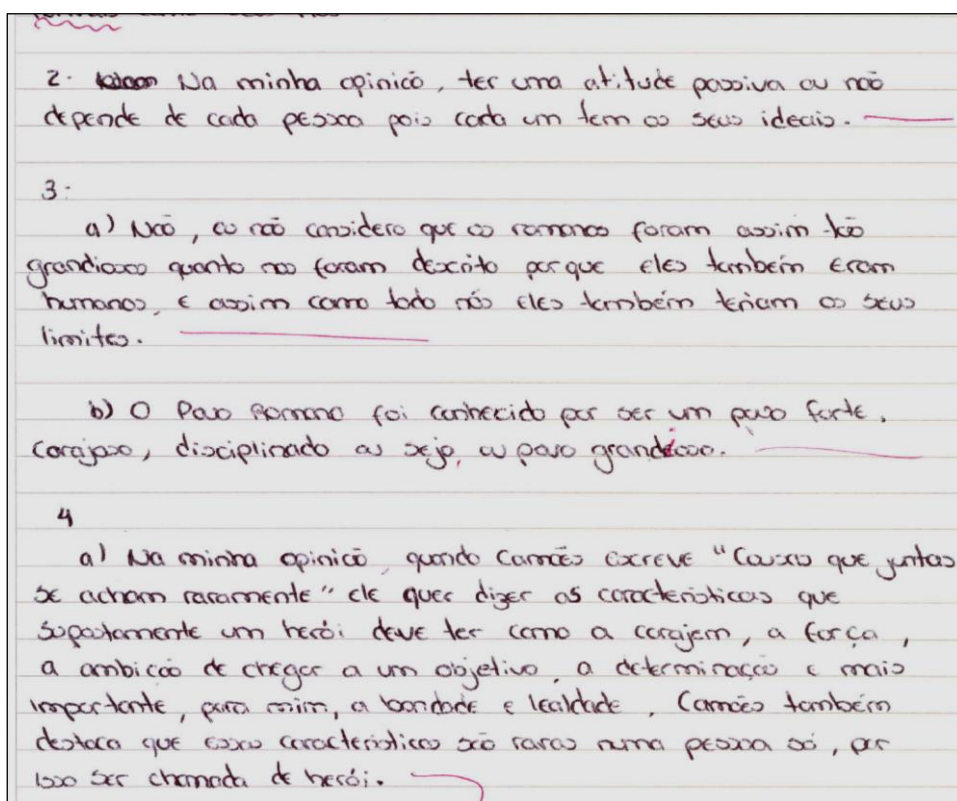 2. Na minha opinicõ, ter uma atitude passiva ou não
depende de cada pessoa pois cada um tem os seus ideais.
3.
a) Não, eu não considero que os romanos foram assim tão
grandiosos quanto nos foram descrito porque eles também eram
humanos, e assim como todo nós eles também teriam os seus
limites.
b) O Povo Romano foi conhecido por ser um povo forte,
corajoso, disciplinado ou seja, um povo grandioso.
4
a) Na minha opinicõ, quando Camões escreve "Cousas que juntas
se acham raramente" ele quer dizer as características que
supostamente um herói deve ter como a corajem, a força,
a ambicão de chegar a um objetivo, a determinação e mais
importante, para mim, a bondade e lealdade, Camões também
destaca que essas características são raras numa pessoa só, por
isso ser chamada de herói.